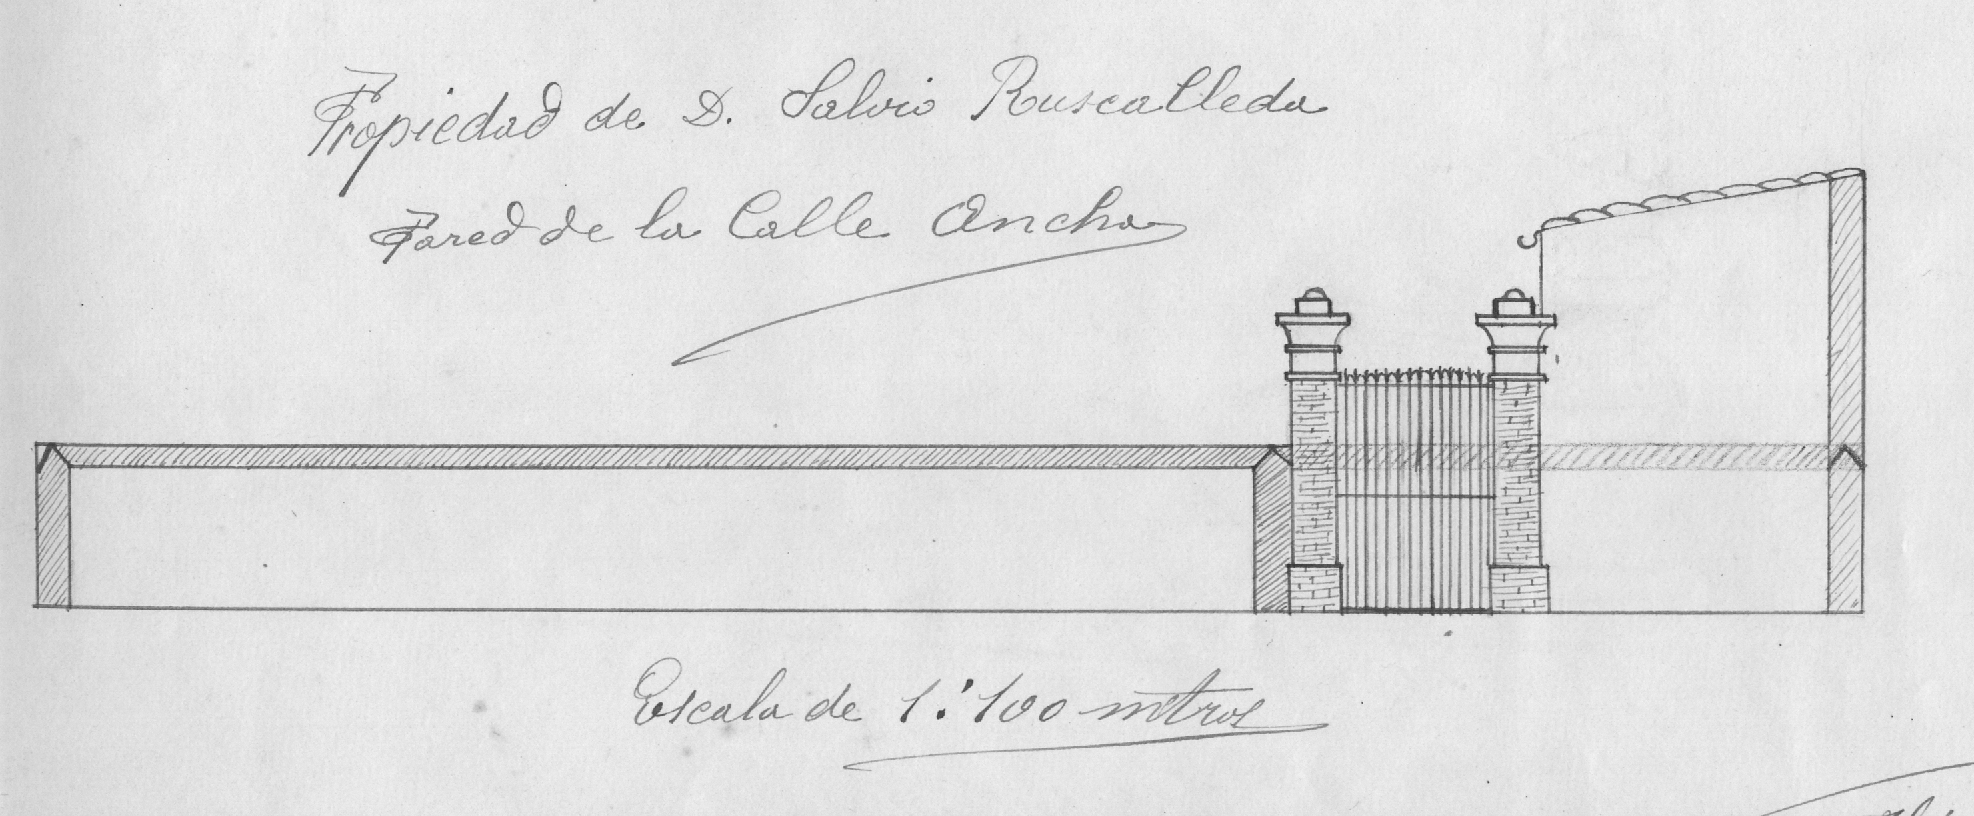 Propiedad de D. Salvio Ruscalleda
Pared de la Calle Ancha
Escala de 1:100 mtros